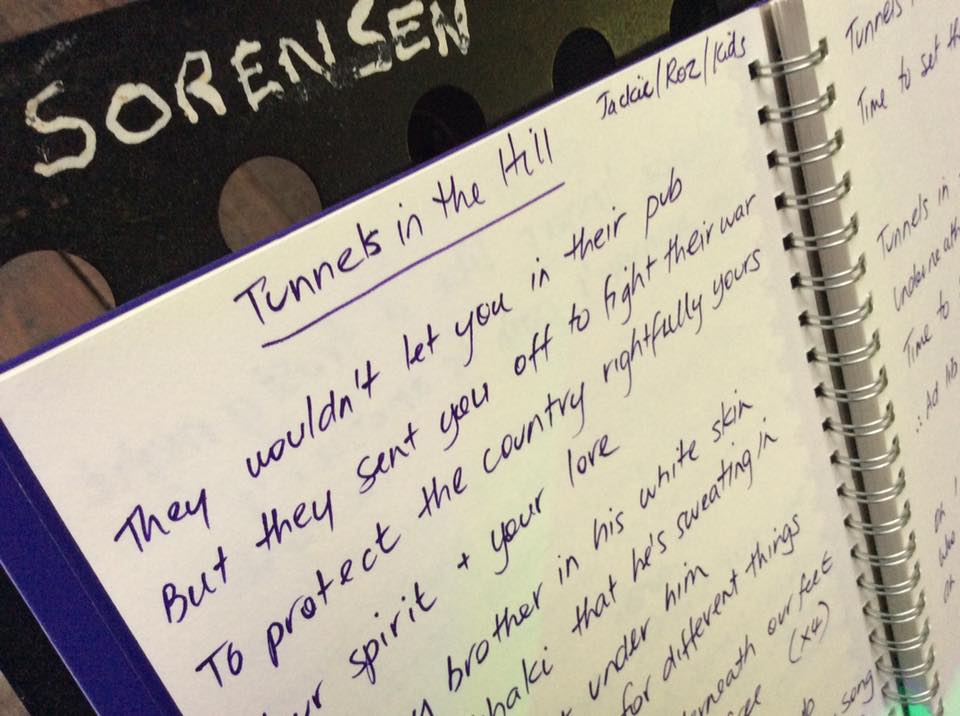 SORENSEN
Jackie/Roz/Kids
Tunnels in the Hill
They wouldn't let you in their pub
But they sent you off to fight their war
To protect the country rightfully yours
spirit + your love
brother in his white skin
that he's sweating in
under him
for different things
our feet
(x4)
song
Tunnels
Time to set
Tunnels in
Time to
∴ Ad lib
Oh
who
Oh